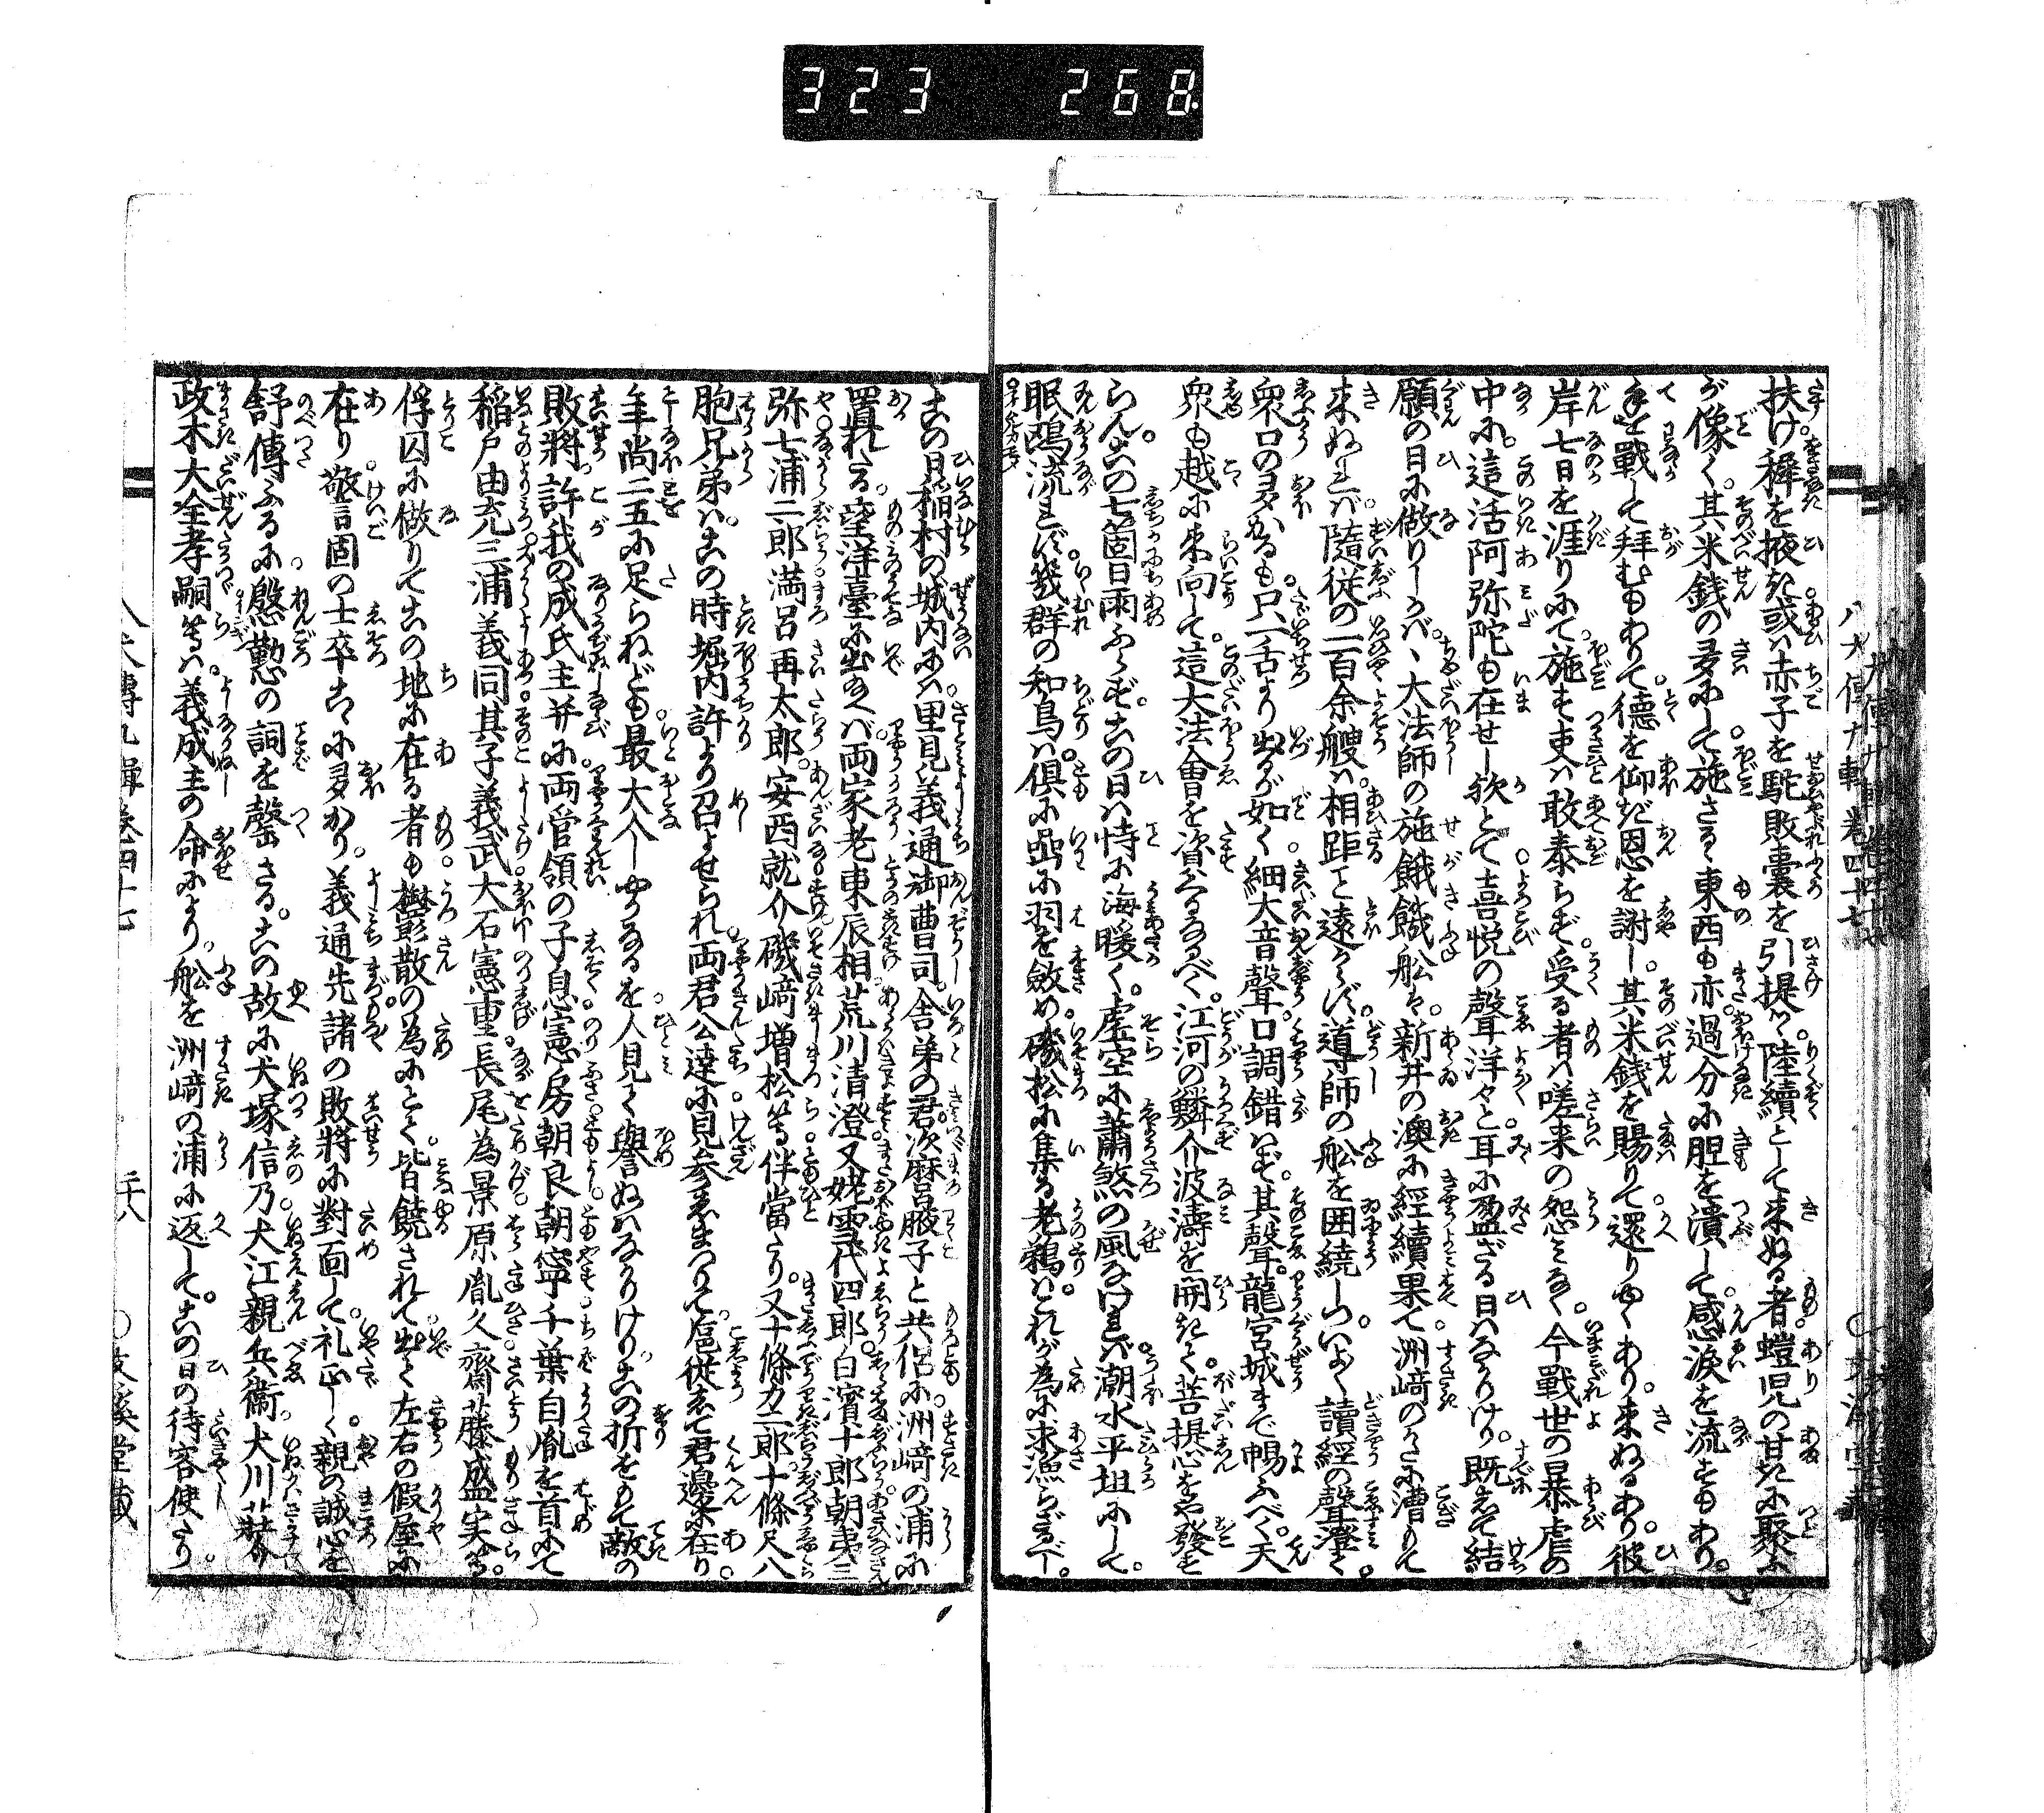 323 268
八犬傳九輯卷四十七
扶け穉を掖き或ハ赤子を駝敗囊を引提て陸續として來ぬる者螘児の甘きに聚ふ
が像く其米錢の多にして施さるゝ東西も亦過分に胆を潰して感涙を流すもあり
手を戰して拜むもありて德を仰ぎ恩を謝し其米錢を賜りて還りゆくあり來ぬるあり彼
岸七日を涯りにて施す吏ハ敢泰らず受る者ハ嗟来の怨みなく今戰世の暴虐の
中に這活阿弥陀も在せし欤とて喜悦の聲洋々と耳に盈ざる日ハなかりけり既にして結
願の日に做りしかバ、大法師の施餓鬼舩ハ新井の澳に經續果て洲﨑のかたに漕もて
來ぬれバ隨従の一百余艘ハ相距こと遠からず導師の舩を囲繞しつゝいよゝ讀經の聲澄く
衆口の多かるも只一舌より出るが如く細大音聲口調錯ハず其聲龍宮城まで暢ふべく天
衆も越に来向して這大法會を資給ふなるべく江河の鱗介波濤を開きて菩提心をや發す
らんこの七箇日雨ふらずこの日ハ恃に海暖く虚空に蕭然の風なけれバ潮水平坦にして
眠鴎流れず幾群の和鳥ハ倶に嵒に羽を斂め磯松に集る老鶴ハこれが為に求漁らざるべし
この日稲村の城内にハ里見義通御曹司舎弟の君次麿晨腋子と共侶に洲﨑の浦に
置れたる望洋臺に出給へバ両家老東辰相荒川清澄又姥雪代四郎白濱十郎朝夷三
弥七浦二郎満呂再太郎安西就介磯﨑増松等伴當たり又十條力二郎十條尺八
胞兄弟ハこの時堀内許より召よせられ両君公達に見参しまつりて扈從して君邊に在り
年尚二五に足らねども最大人しやかなるを人見て譽ぬハなかりけりこの折をもて敵の
敗將許我の成氏主并に両管領の子息憲房朝良朝寧千葉自胤を首にて
稲戸由充三浦義同其子義武大石憲重長尾為景原胤久齋藤盛実等
俘囚に做りてこの地に在る者も欝散の為にとて皆饒されて出て左右の假屋に
在り警固の士卒こゝに多かり義通先諸の敗將に對面して礼正しく親の誠心を
舒傳ふるに慇懃の詞を罄さるこの故に犬塚信乃犬江親兵衛犬川荘介
政木大全孝嗣等ハ義成主の命により舩を洲﨑の浦に返してこの日の待客使たり
八犬傳九輯卷四十七
文溪堂藏